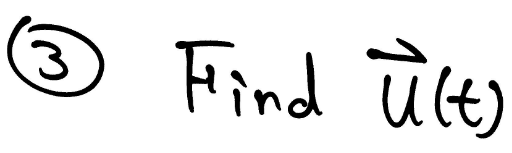 ③ Find \vec{u}(t)